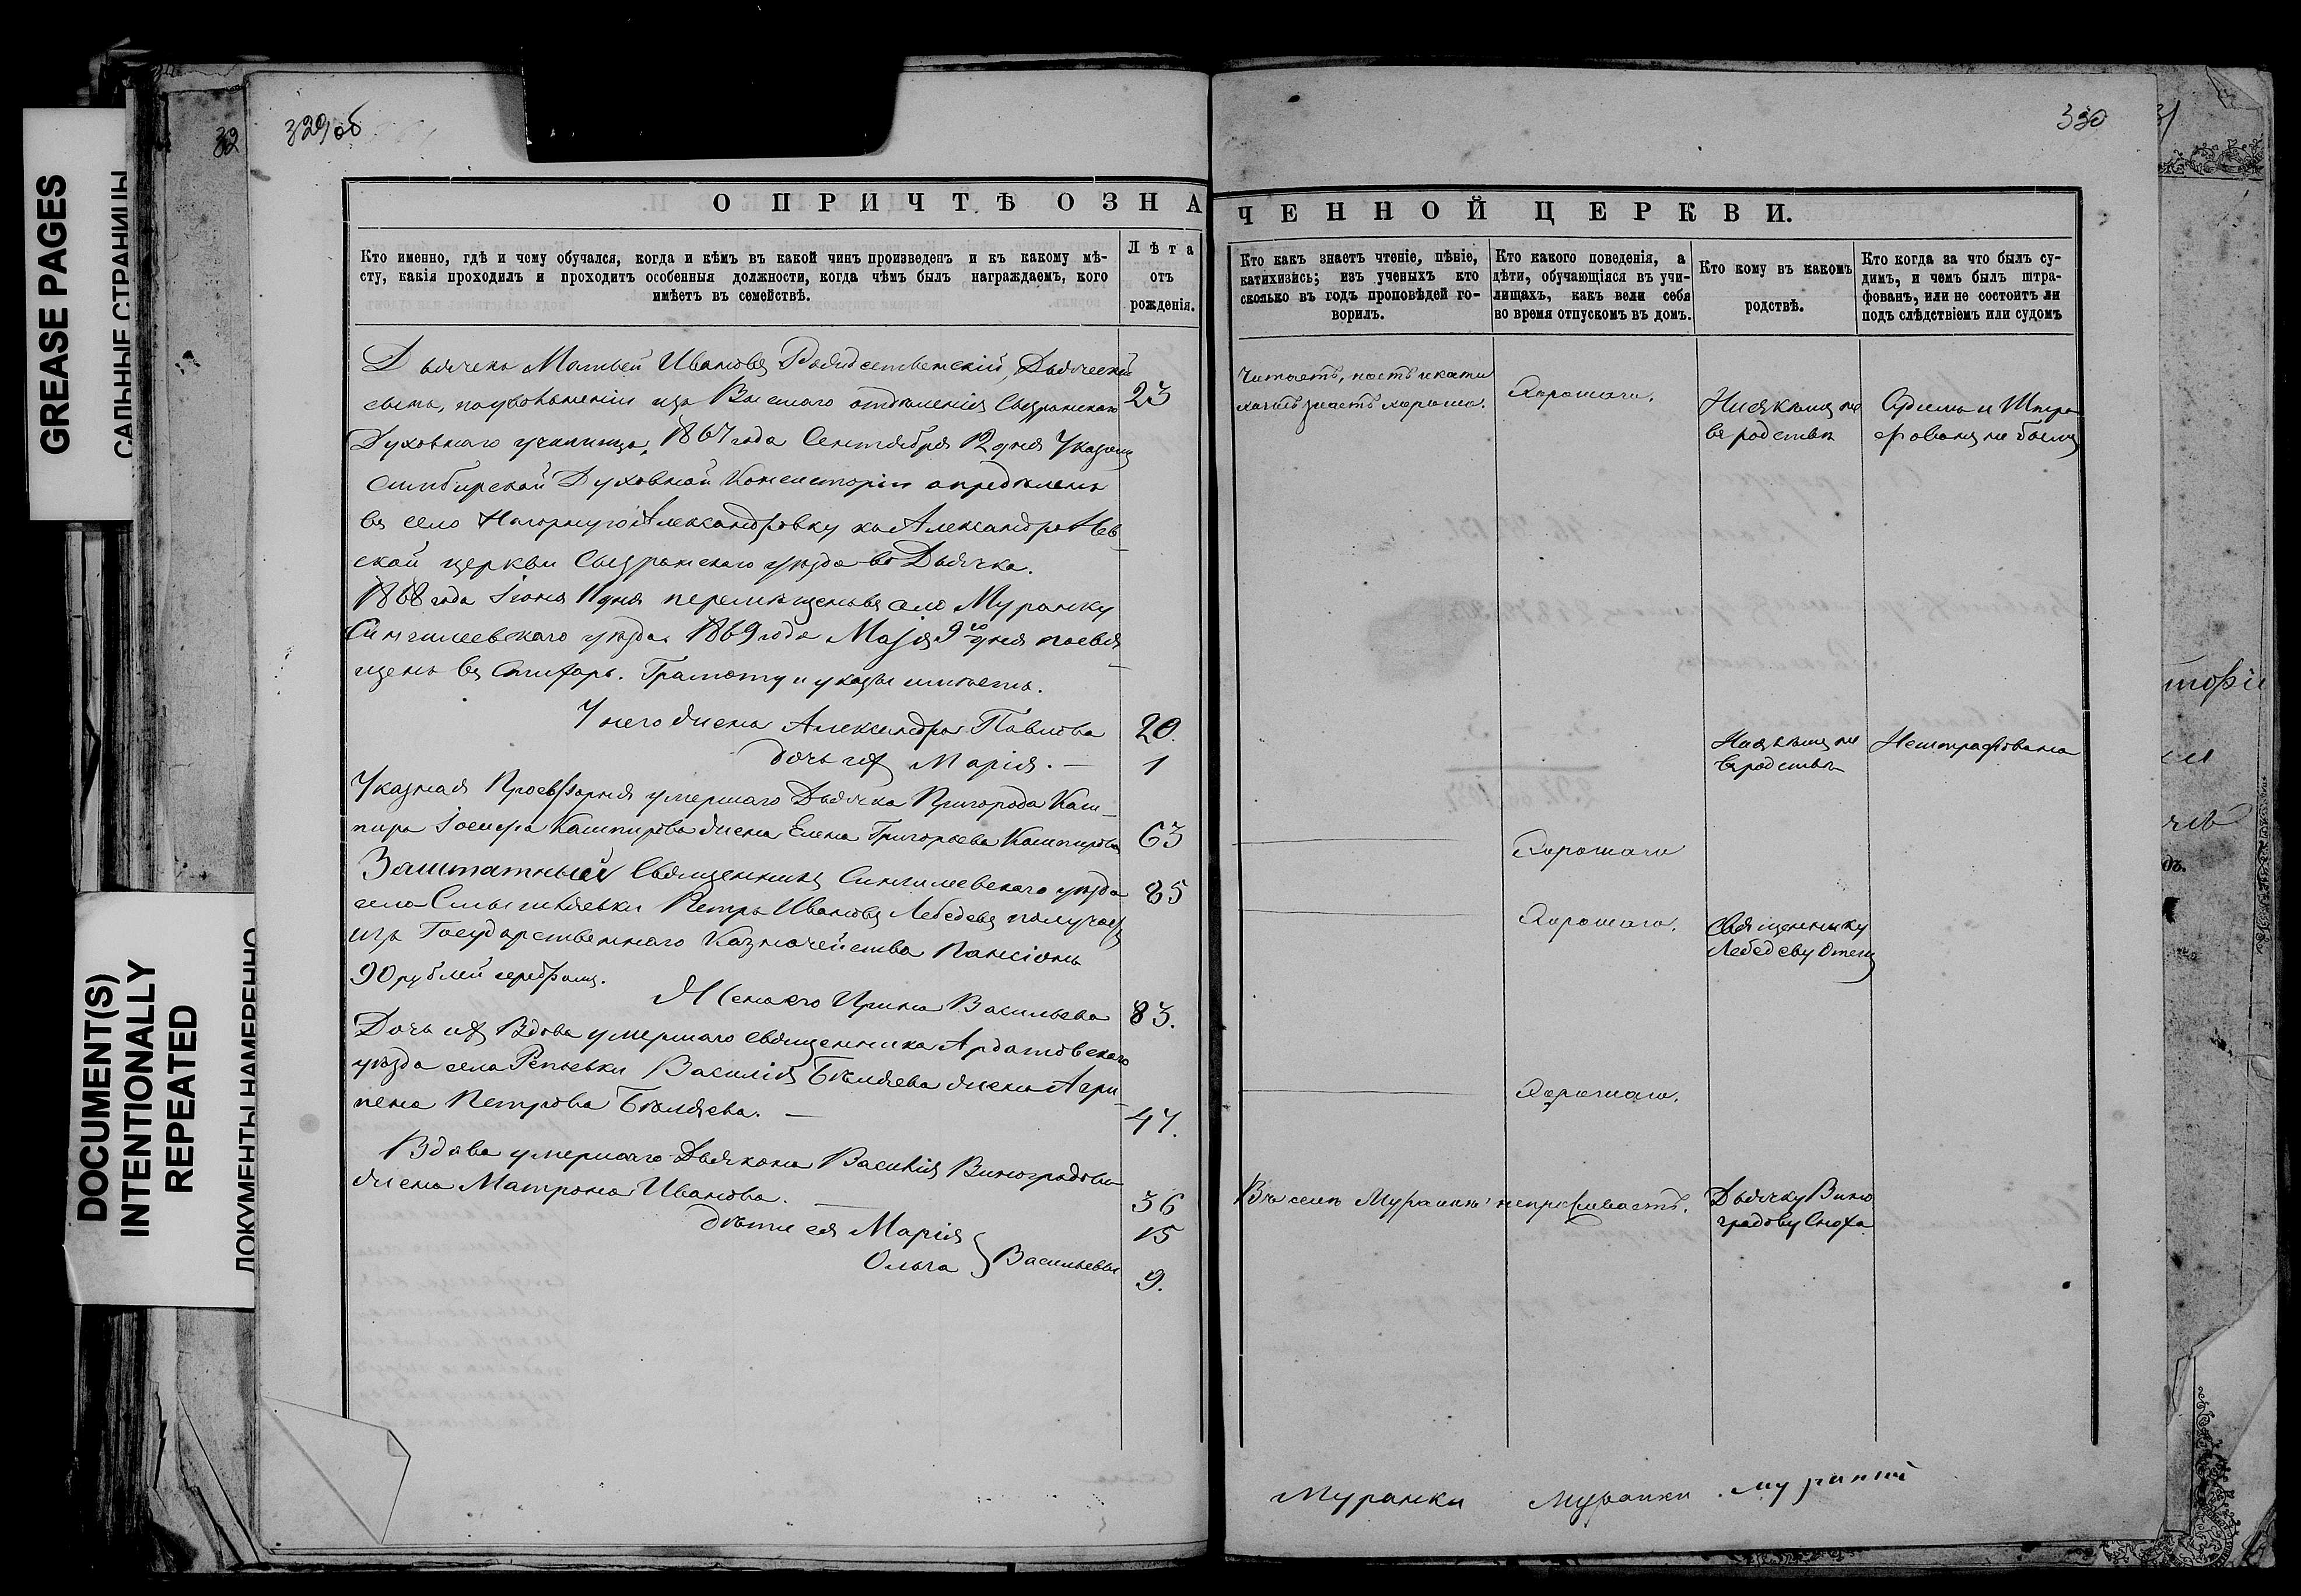 GREASE PAGES
САЛЬНЫЕ СТРАНИЦЫ
DOCUMENT(S)
INTENTIONALLY
REPEATED
ДОКУМЕНТЫ НАМЕРЕННО
32
329об
О ПРИЧТѢ ОЗНА
Кто именно, гдѣ и чему обучался, когда и кѣмъ въ какой чинъ произведенъ и къ какому мѣ-
сту, какія проходилъ и проходитъ особенныя должности, когда чѣмъ былъ награждаемъ, кого
имѣетъ въ семействѣ.
Лѣта
отъ
рожденія.
Дьячекъ Матвей Ивановъ Рождественскій, Дьяческій
сынъ, по увольненіи изъ Высшаго отдѣленія Сызранскаго 23
Духовнаго училища, 1867 года Сентября 12 дня Указомъ
Симбирской Духовной Консисторіи опредѣленъ
въ село Нагорную Александровку къ Александро Нев-
ской церкви Сызранскаго уѣзда во Дьячка.
1868 года Іюня 11 дня перемѣщенъ въ село Муранку
Сингилеевскаго уѣзда. 1869 года Маjя 9го дня посвя-
щенъ въ Стихарь. Грамоту и указы имѣетъ.
У него жена Александра Павлова 20.
дочь ихъ Марія. — 1
Указная Просвфорня умершаго Дьячка Пригорода Каш-
пира Іосифа Кашпирова жена Елена Григорьева Кашпирова 63
Заштатный Священникъ Сингилеевскаго уѣзда 85
села Смышляевки Петръ Ивановъ Лебедевъ получаетъ
изъ Государственнаго Казначейства Пансіонъ
90 рублей серебромъ.
Жена его Ирина Васильева 83.
Дочь ихъ Вдова умершаго священника Ардатовскаго
уѣзда села Репьевки Василія Бѣляева жена Агри-
пена Петрова Бѣляева. — 47.
Вдова умершаго Дьякона Василія Виноградова
жена Матрона Иванова. — 36
дѣти ея Марія 15
Ольга } Васильевы 9.
330
ЧЕННОЙ ЦЕРКВИ.
Кто какъ знаетъ чтеніе, пѣніе,
катихизисъ; изъ ученыхъ кто
сколько въ годъ проповѣдей го-
ворилъ.
Кто какого поведенія, а
дѣти, обучающіяся въ учи-
лищахъ, какъ вели себя
во время отпускомъ въ домъ.
Кто кому въ какомъ
родствѣ.
Кто когда за что былъ су-
димъ, и чемъ былъ штра-
фованъ, или не состоитъ ли
подъ слѣдствіемъ или судомъ
Читаетъ, поетъ и кати
хизисъ знаетъ хорошо.
Хорошаго.
Ни съ кѣмъ не
въ родствѣ
Судимъ и Штра
фованъ не былъ
Ни съ кѣмъ не
въ родствѣ
Не штрафована
Хорошаго
Хорошаго.
Священнику
Лебедеву Отецъ
Хорошаго.
Въ селѣ Муранкѣ не проживаетъ.
Дьячку Вино
градову Сноха
Муранки Муранки . Муранки